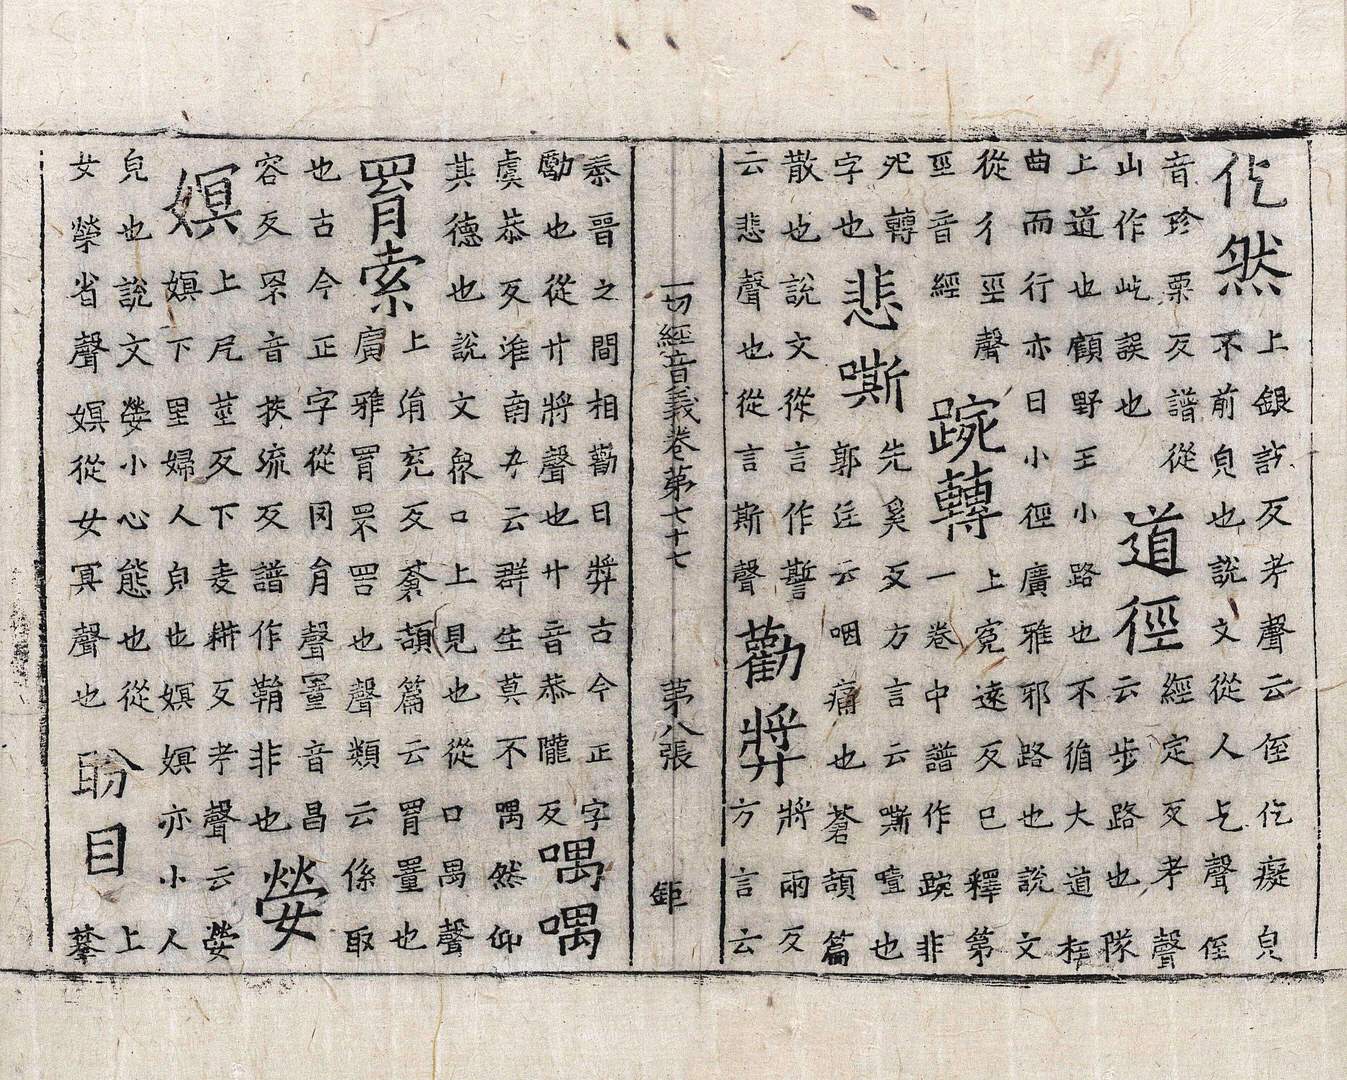 仡然
上銀訖反考聲云侄仡癡皃
不前皃也說文從人乞聲侄
音珍栗反譜從
山作屹誤也
道徑
經定反考聲
云步路也隊
上道也顧野王小路也不循大道
曲而行亦曰小徑廣雅邪路也說文
從彳巠聲
巠音經
踠轉
上寃遠反已釋第
一卷中譜作踠非
夗轉
字也
悲嘶
先奚反方言云嘶噎也
郭注云咽痛也蒼頡篇
散也說文從言作
云悲聲也從言斯聲
勸奬
將兩反
方言云
秦晉之間相勸曰奬古今正字
勵也從廾將聲也廾音恭隴反
喁喁
虞恭反淮南子云群生莫不喁然仰
其德也說文衆口上見也從口禺聲
罥索
上絹兗反蒼頡篇云罥罿也
廣雅罥罘罟也聲類云係取
也古今正字從冈肙聲罿音昌
容反罘音扶流反譜作鞙非也
嫈
嫇
上戹莖反下麦耕反考聲云嫈
嫇下里婦人皃也嫇嫇亦小人
皃也說文嫈小心態也從
女熒省聲嫇從女冥聲也
盻目
上
攀
一切經音義卷第七十七 第八張 鉅